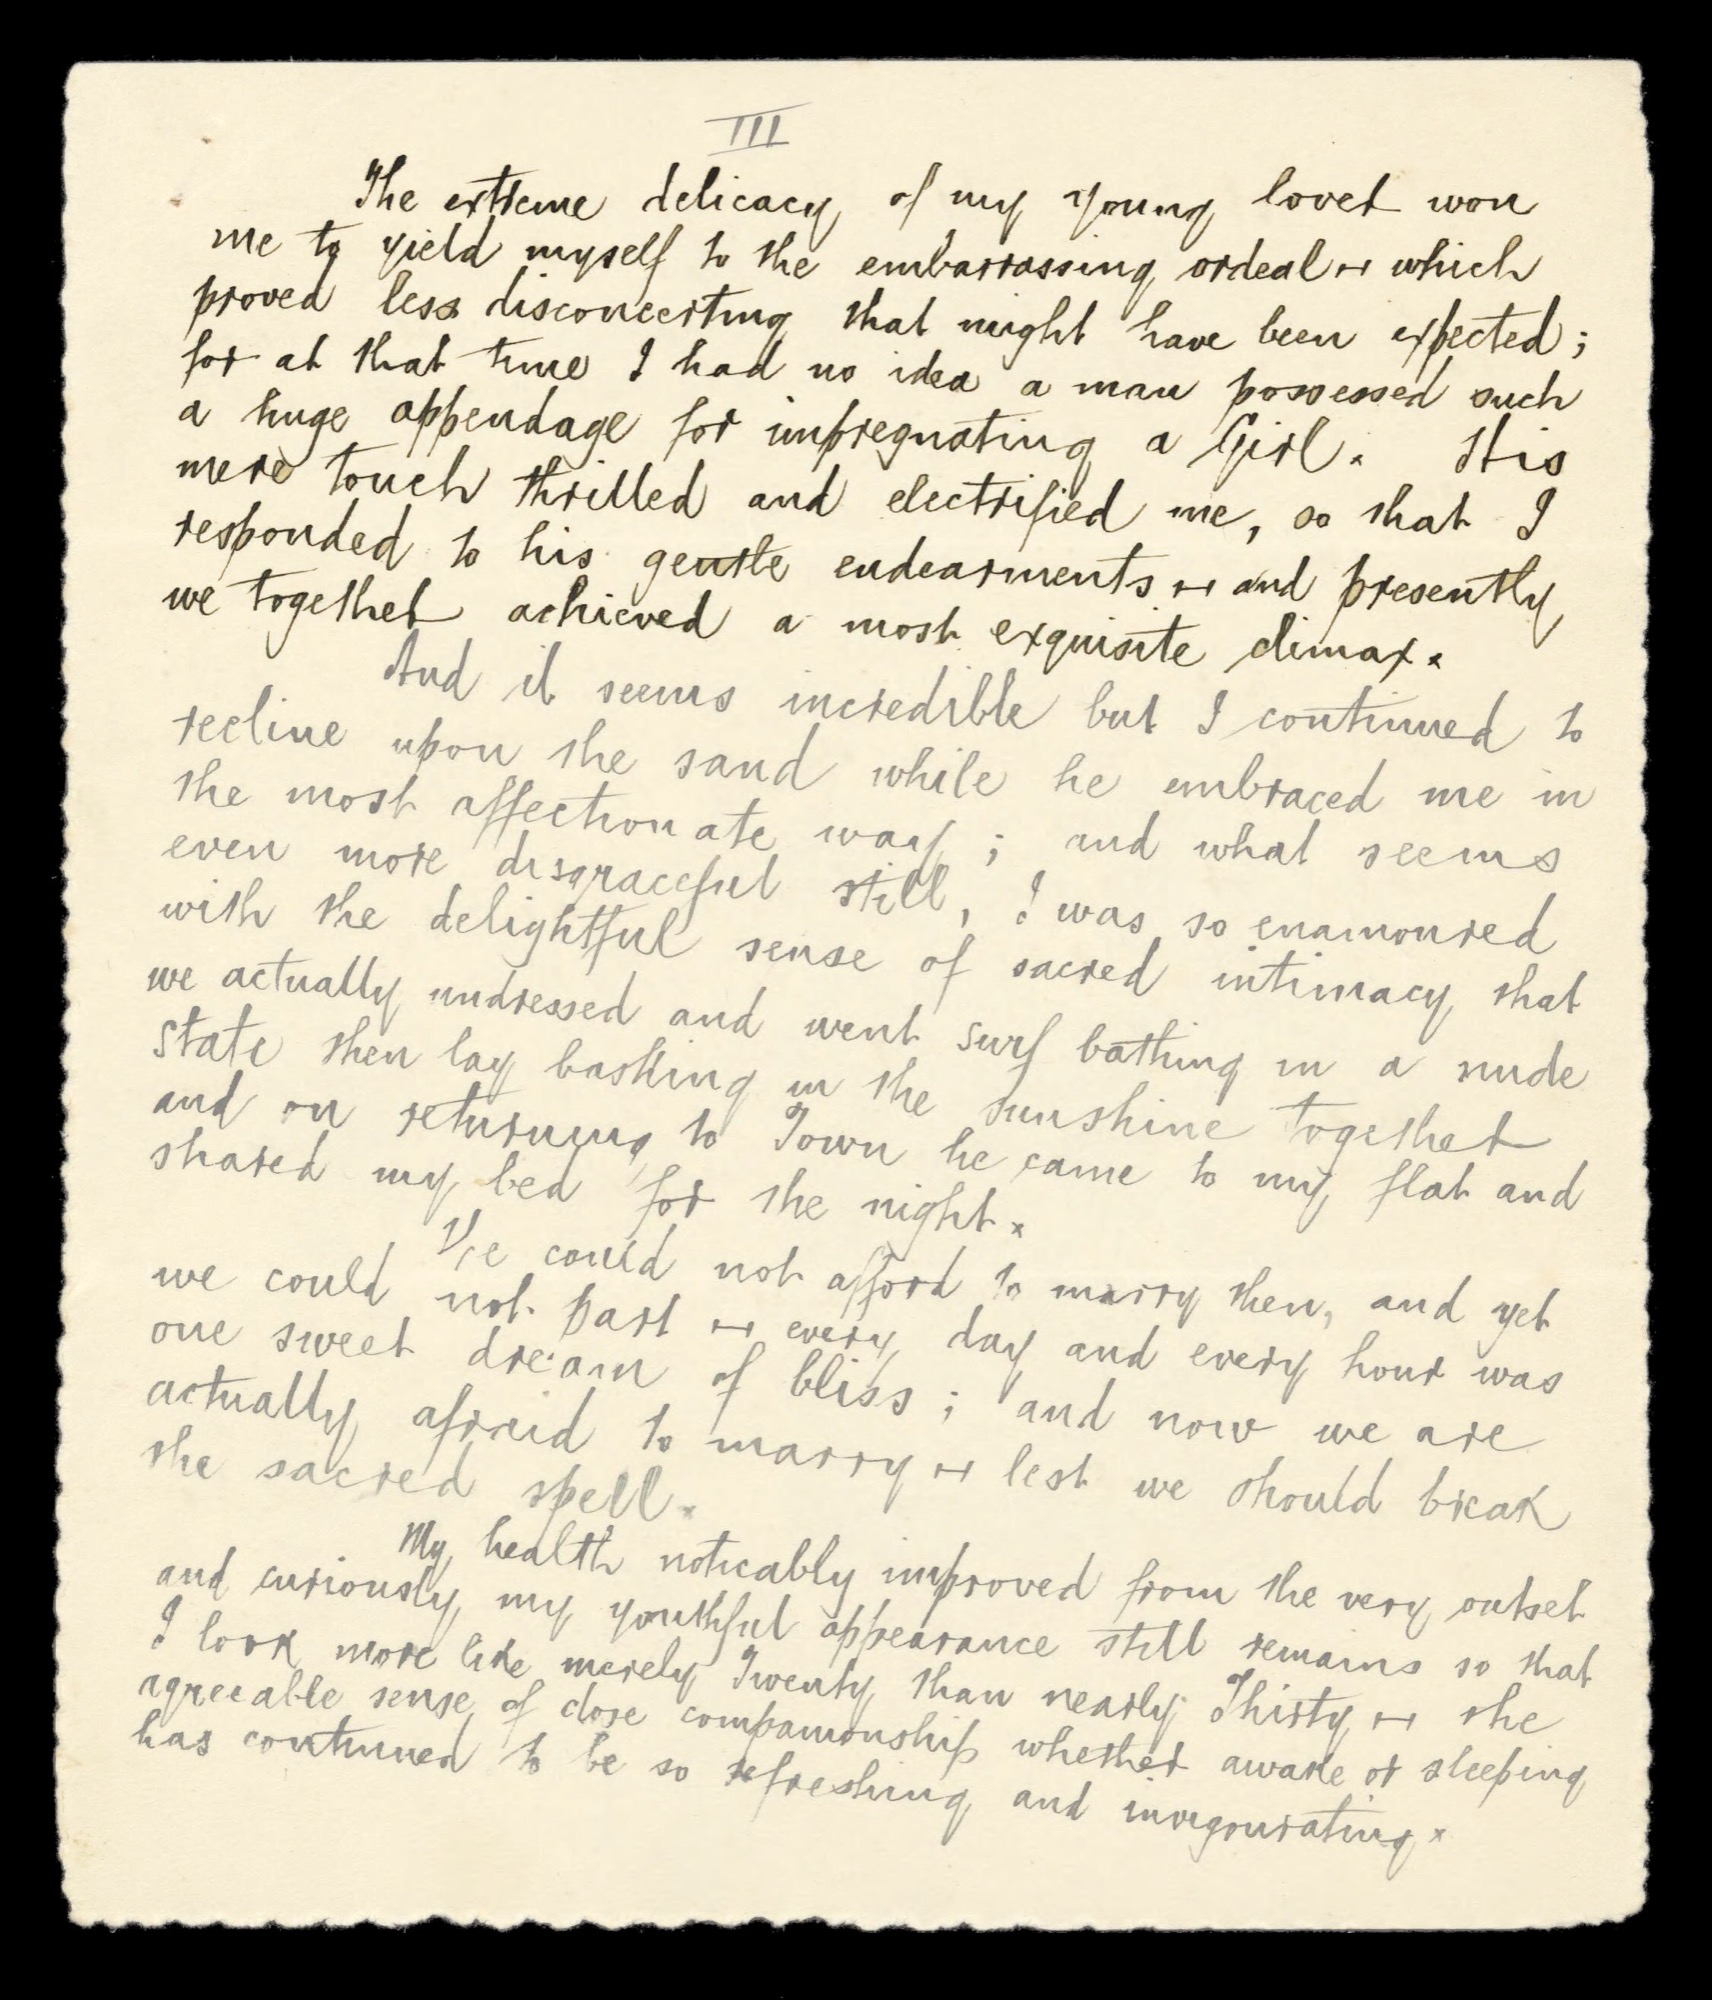 III
The extreme delicacy of my young lover won
me to yield myself to the embarrassing ordeal -- which
proved less disconcerting that might have been expected;
for at that time I had no idea a man possessed such
a huge appendage for impregnating a Girl. His
mere touch thrilled and electrified me, so that I
responded to his gentle endearments -- and presently
we together achieved a most exquisite climax.
And it seems incredible but I continued to
recline upon the sand while he embraced me in
the most affectionate way; and what seems
even more disgraceful still, I was so enamoured
with the delightful sense of sacred intimacy that
we actually undressed and went surf bathing in a nude
state then lay basking in the sunshine together
and on returning to Town he came to my flat and
shared my bed for the night.
We could not afford to marry then, and yet
we could not part -- every day and every hour was
one sweet dream of bliss; and now we are
actually afraid to marry -- lest we should break
the sacred spell.
My health noticably improved from the very outset
and curiously my youthful appearance still remains so that
I look more like merely Twenty than nearly Thirty -- the
agreeable sense of close companionship whether awake or sleeping
has continued to be so refreshing and invigourating.